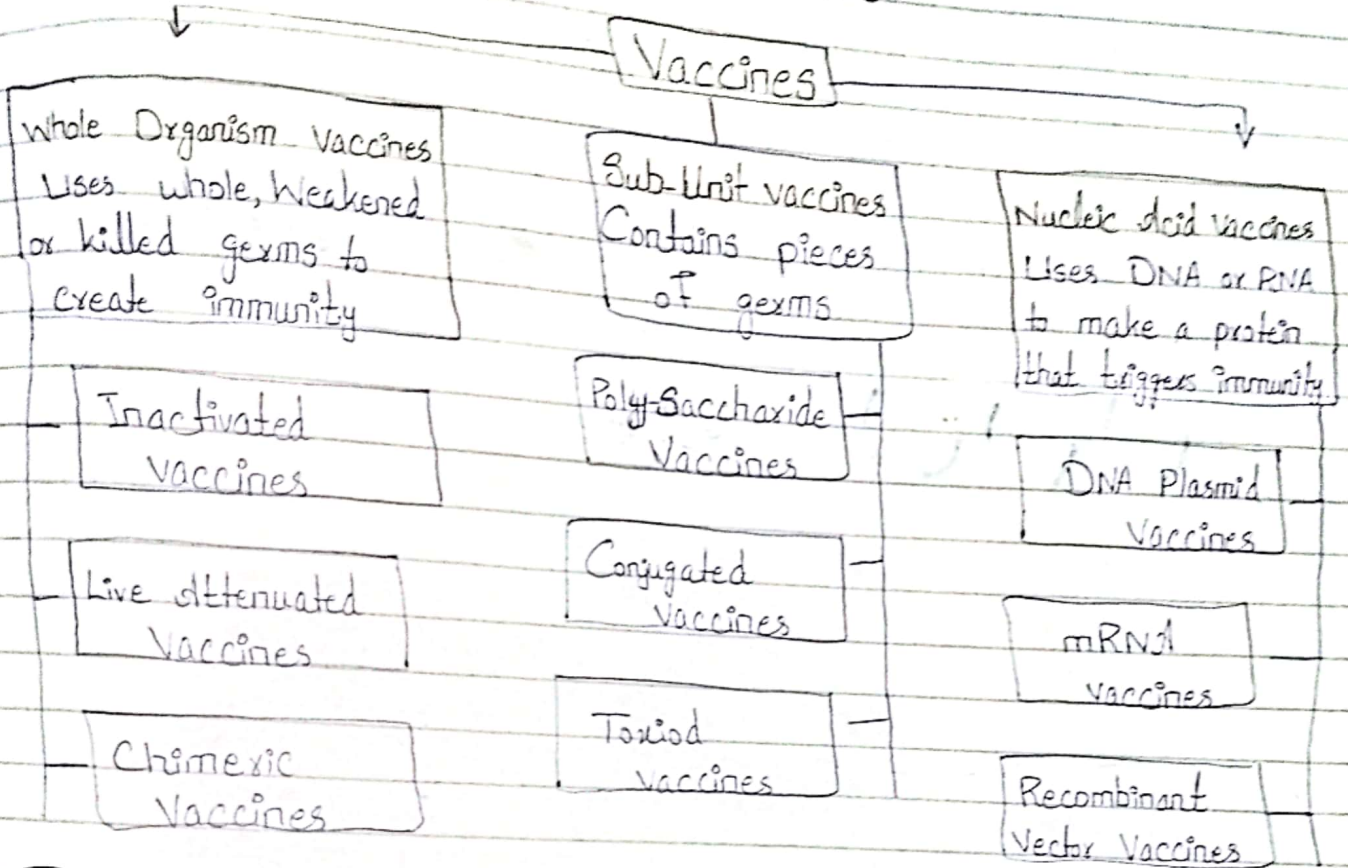 Vaccines
Whole Organism Vaccines
Uses whole, Weakened
or killed germs to
create immunity
Inactivated
vaccines
Live Attenuated
Vaccines
Chimeric
Vaccines
Sub-Unit vaccines
Contains pieces
of germs
Poly-Saccharide
Vaccines
Conjugated
Vaccines
Toxiod
vaccines
Nucleic Acid Vaccines
Uses DNA or RNA
to make a protein
that triggers immunity
DNA Plasmid
Vaccines
mRNA
vaccines
Recombinant
Vector Vaccines